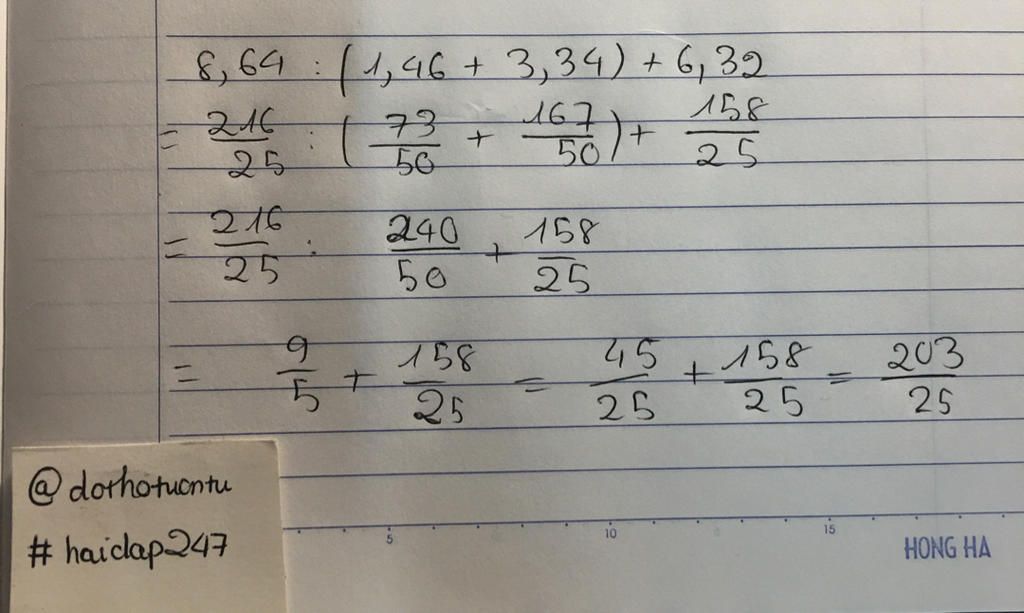 8,64 : (1,46 + 3,34) + 6,32
= 216/25 : (73/50 + 167/50) + 158/25
= 216/25 : 240/50 + 158/25
= 9/5 + 158/25 = 45/25 + 158/25 = 203/25
@dothotuontu
#haidap247
5 10 15
HONG HA